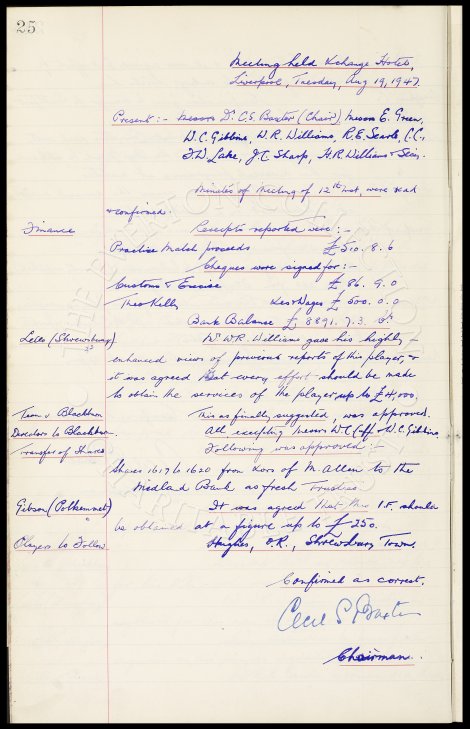 25
Meeting held Xchange Hotel,
Liverpool, Tuesday, Aug 19, 1947.
Present :- Messrs Dr. C.S. Baxter (Chair), Messrs E. Green,
W.C. Gibbins, W.R. Williams, R.E. Searle, C.C.,
F.W. Lake, J.C. Sharp, H.R. Williams &
Minutes of Meeting of 12th inst, were read
& confirmed.
Finance Receipts reported were :-
Practise Match proceeds £510. 8. 6
Cheques were signed for :-
Customs & Excise £ 86. 9. 0
Theo Kelly Wages £ 600. 0. 0
Bank Balance £ 8891. 7. 3
(Shrewsbury) Mr W.R. Williams gave his highly -
enhanced views of previous reports of this player, &
it was agreed that every effort should be made
to obtain the services of the player, up to £4,000.
Team v Blackburn This as finally suggested, was approved.
Directors to Blackburn. All excepting Messrs W.C. Gibbins
Transfer of Shares Following was approved :-
Shares 1617 to 1620 from Exors of M. Allen to the
Midland Bank as fresh Trustees.
Gibson (Polkemmet) It was agreed that this I.F. should
be obtained at a figure up to £250.
Players to Follow. Hughes, O.R., Shrewsbury Town.
Confirmed as correct.
Cecil S Baxter
Chairman.
THE EVERTON COLLECTION
CHARITABLE TRUST